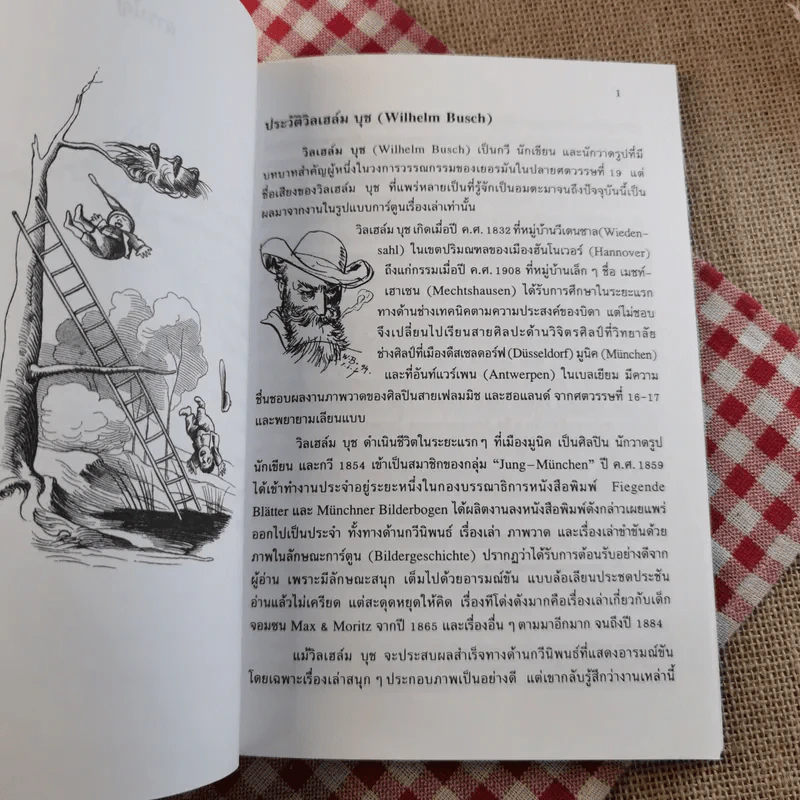 1
ประวัติวิลเฮล์ม บุช (Wilhelm Busch)
วิลเฮล์ม บุช (Wilhelm Busch) เป็นกวี นักเขียน และนักวาดรูปที่มี
บทบาทสำคัญผู้หนึ่งในวงการวรรณกรรมของเยอรมันในปลายศตวรรษที่ 19 แต่
ชื่อเสียงของวิลเฮล์ม บุช ที่แพร่หลายเป็นที่รู้จักเป็นอมตะมาจนถึงปัจจุบันนี้เป็น
ผลมาจากงานในรูปแบบการ์ตูนเรื่องเล่าเท่านั้น
วิลเฮล์ม บุช เกิดเมื่อปี ค.ศ. 1832 ที่หมู่บ้านวีเดนซาล(Wieden-
sahl) ในเขตปริมณฑลของเมืองฮันโนเวอร์ (Hannover)
ถึงแก่กรรมเมื่อปี ค.ศ. 1908 ที่หมู่บ้านเล็ก ๆ ชื่อ เมชท์-
เฮาเซน (Mechtshausen) ได้รับการศึกษาในระยะแรก
ทางด้านช่างเทคนิคตามความประสงค์ของบิดา แต่ไม่ชอบ
จึงเปลี่ยนไปเรียนสายศิลปะด้านวิจิตรศิลป์ที่วิทยาลัย
ช่างศิลป์ที่เมืองดึสเซลดอร์ฟ (Düsseldorf) มูนิค (München)
และที่อันท์แวร์เพน (Antwerpen) ในเบลเยียม มีความ
ชื่นชอบผลงานภาพวาดของศิลปินสายเฟลมมิช และฮอแลนด์ จากศตวรรษที่ 16-17
และพยายามเลียนแบบ
วิลเฮล์ม บุช ดำเนินชีวิตในระยะแรก ๆ ที่เมืองมูนิค เป็นศิลปิน นักวาดรูป
นักเขียน และกวี 1854 เข้าเป็นสมาชิกของกลุ่ม “Jung–München” ปี ค.ศ. 1859
ได้เข้าทำงานประจำอยู่ระยะหนึ่งในกองบรรณาธิการหนังสือพิมพ์ Fiegende
Blätter และ Münchner Bilderbogen ได้ผลิตงานลงหนังสือพิมพ์ดังกล่าวเผยแพร่
ออกไปเป็นประจำ ทั้งทางด้านกวีนิพนธ์ เรื่องเล่า ภาพวาด และเรื่องเล่าขำขันด้วย
ภาพในลักษณะการ์ตูน (Bildergeschichte) ปรากฏว่าได้รับการต้อนรับอย่างดีจาก
ผู้อ่าน เพราะมีลักษณะสนุก เต็มไปด้วยอารมณ์ขัน แบบล้อเลียนประชดประชัน
อ่านแล้วไม่เครียด แต่สะดุดหยุดให้คิด เรื่องที่โด่งดังมากคือเรื่องเล่าเกี่ยวกับเด็ก
จอมซน Max & Moritz จากปี 1865 และเรื่องอื่น ๆ ตามมาอีกมาก จนถึงปี 1884
แม้วิลเฮล์ม บุช จะประสบผลสำเร็จทางด้านกวีนิพนธ์ที่แสดงอารมณ์ขัน
โดยเฉพาะเรื่องเล่าสนุก ๆ ประกอบภาพเป็นอย่างดี แต่เขากลับรู้สึกว่างานเหล่านี้